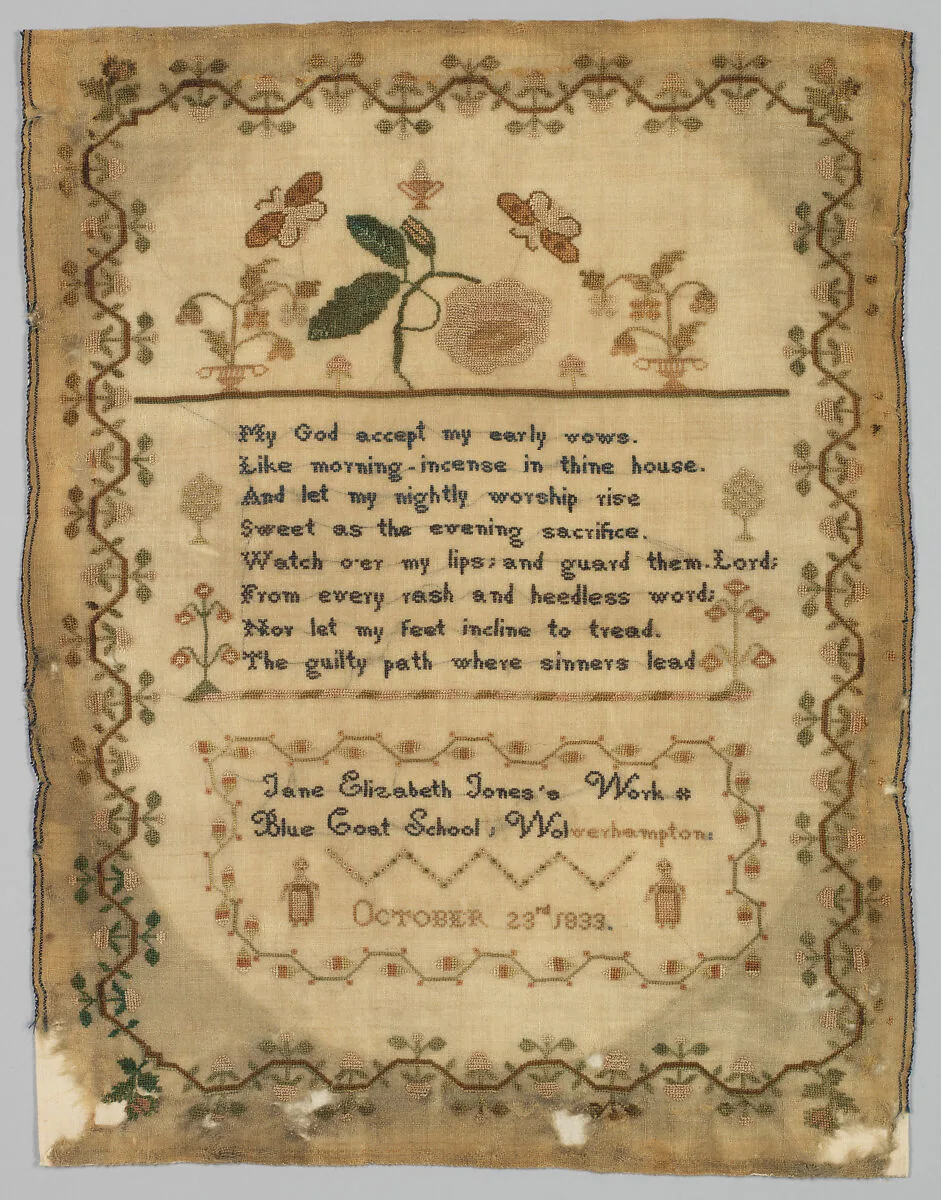 My God accept my early vows.
Like morning-incense in thine house.
And let my nightly worship rise
Sweet as the evening sacrifice.
Watch o'er my lips; and guard them.Lord;
From every rash and heedless word;
Nor let my feet incline to tread.
The guilty path where sinners lead
Jane Elizabeth Jones's Work
Blue Coat School; Wolverhampton;
OCTOBER 23rd 1833.